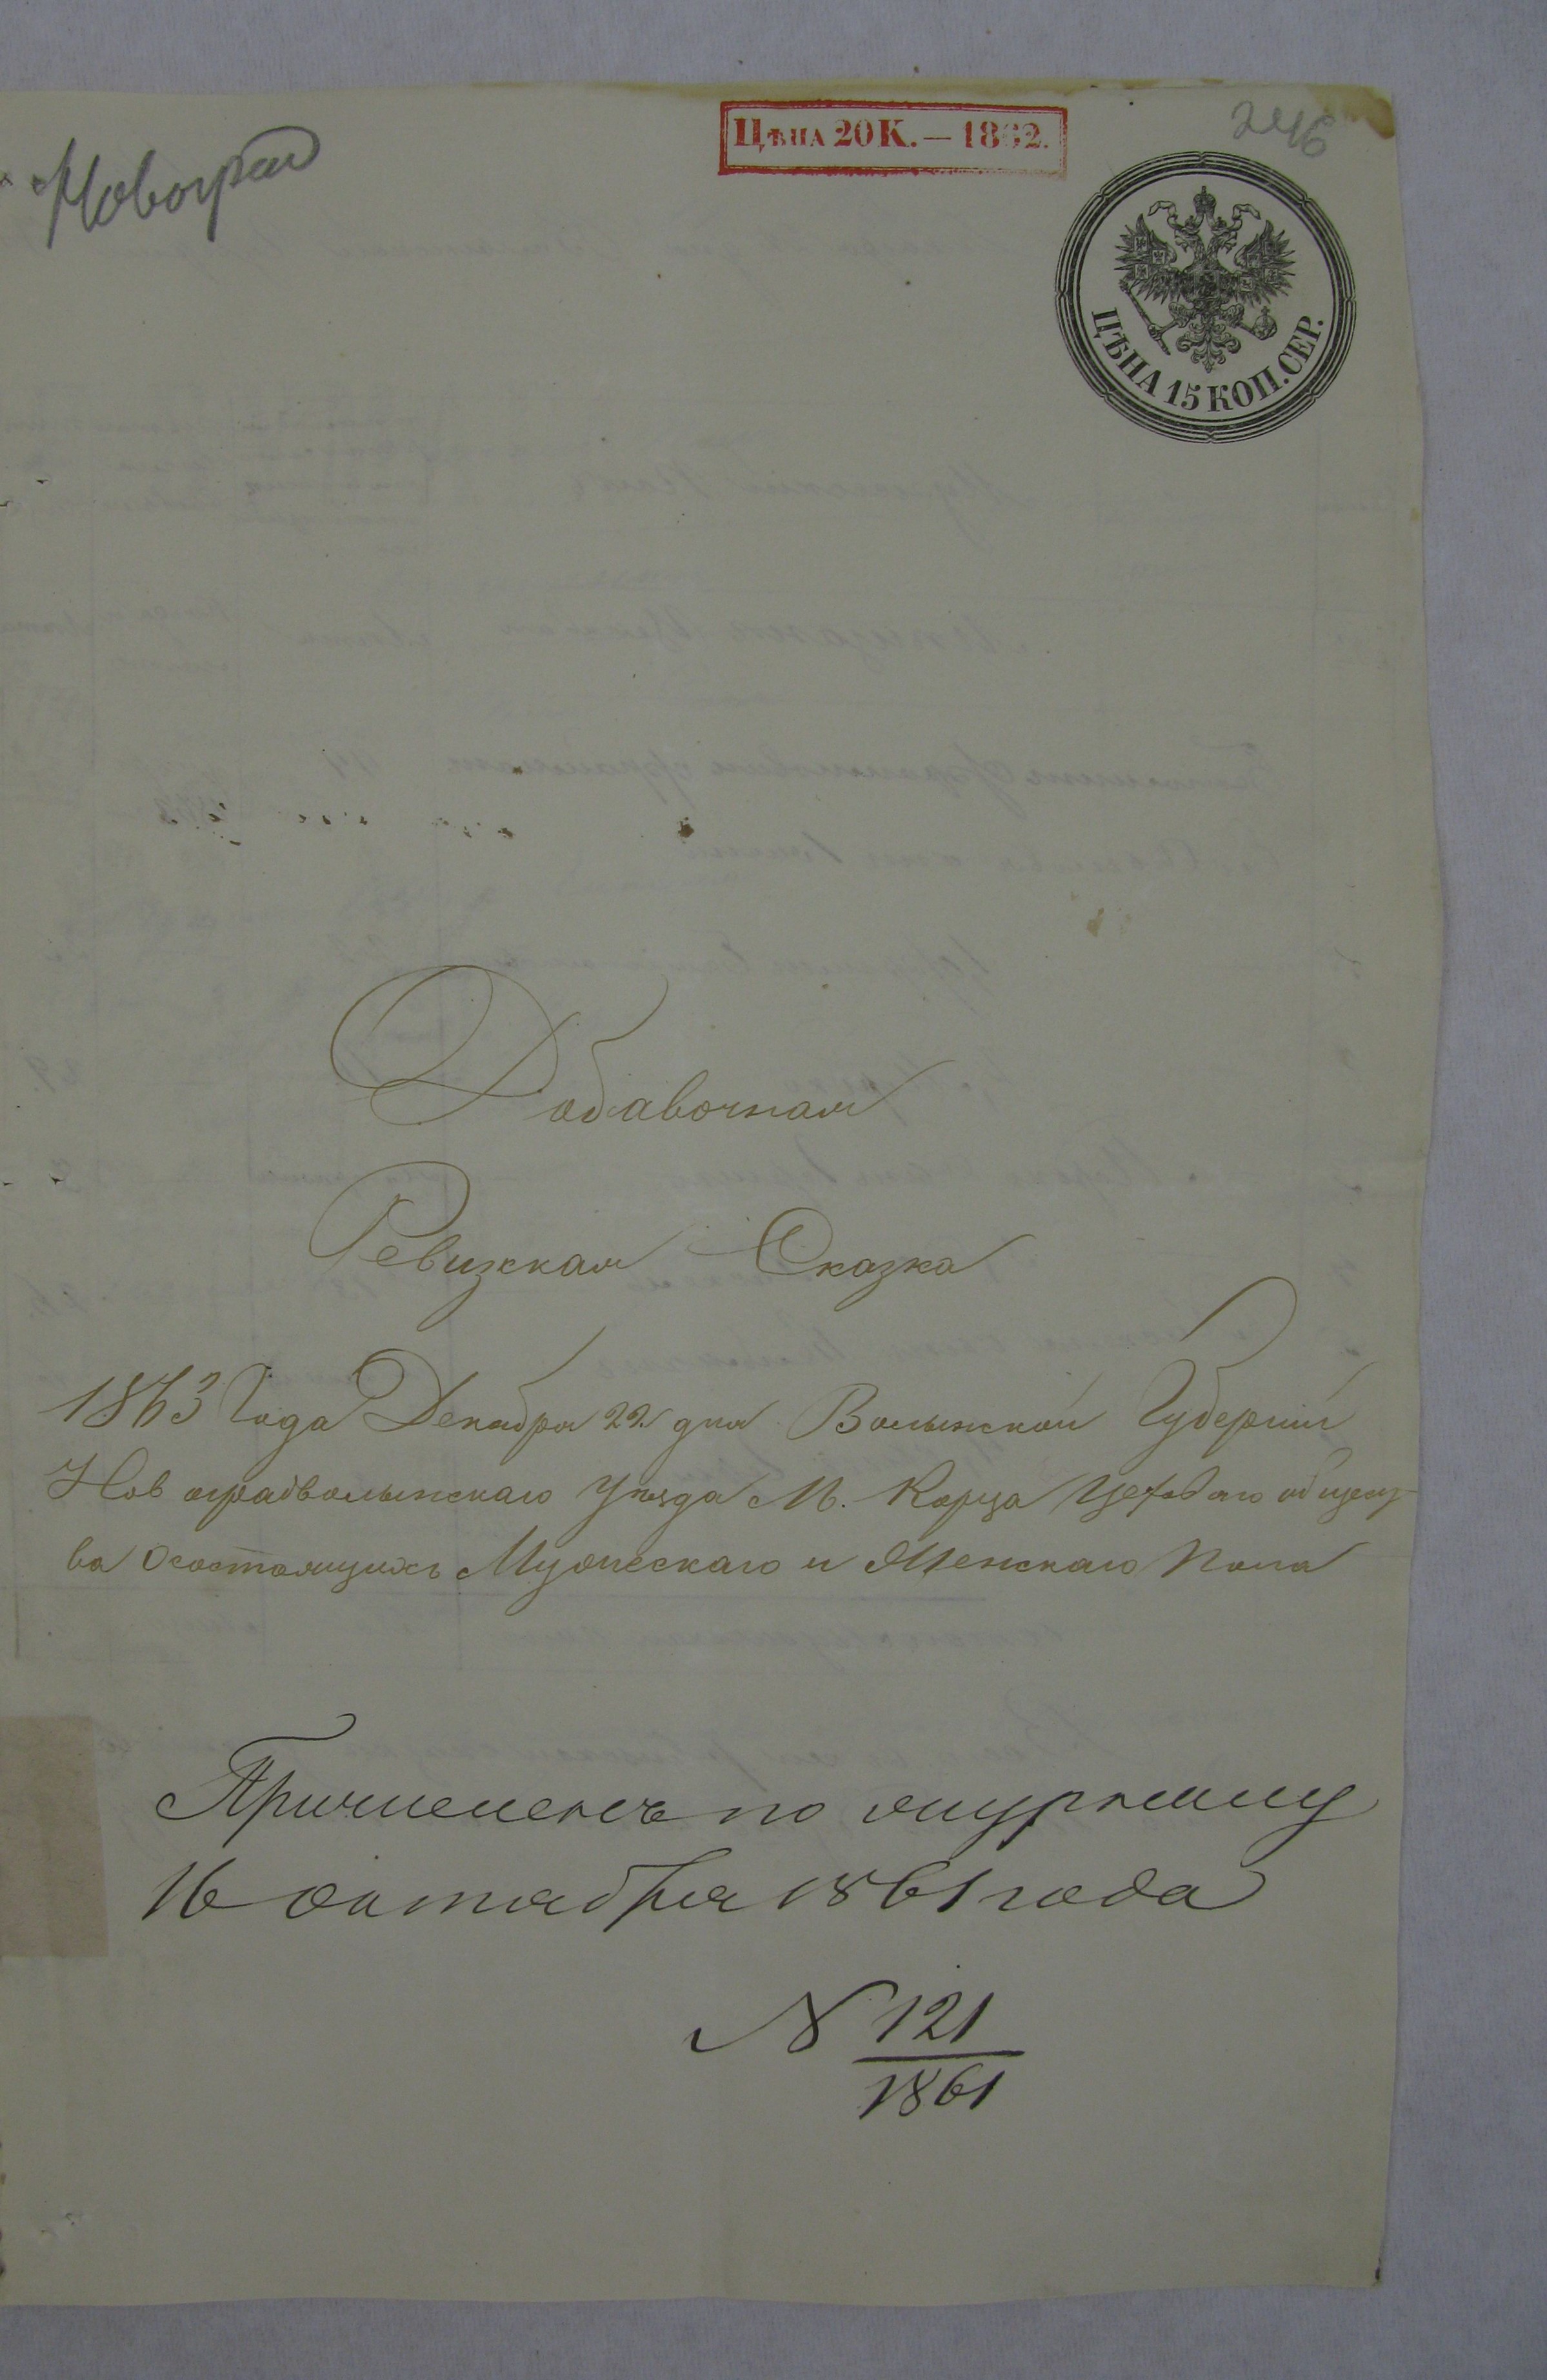 Новоград
ЦѢНА 20 К. — 1862.
246
ЦѢНА 15 КОП. СЕР.
Добавочная
Ревизкая Сказка
1863 Года Декабря 22 дня Волынской Губернии
Новоградволынскаго Уѣзда М. Корца Цеховаго общест-
ва Осостоящихъ Мужескаго и Женскаго Пола
Причисленъ по журналу
16 октября 1861 года
N 121
1861